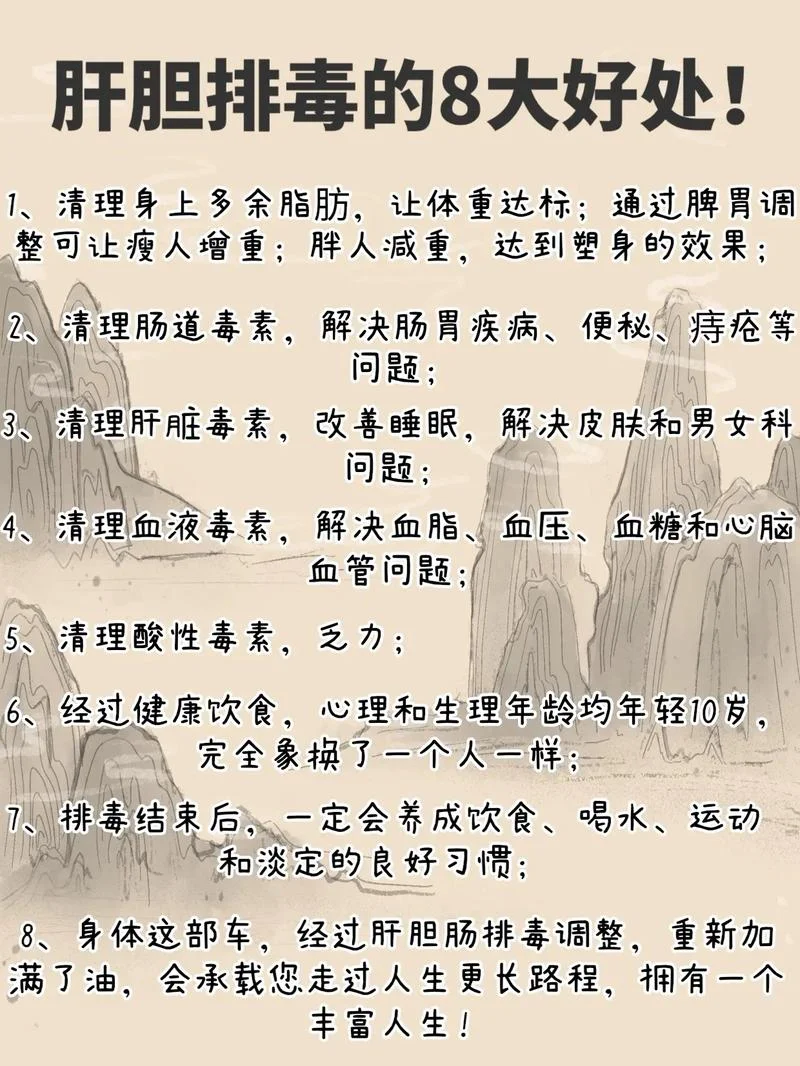 肝胆排毒的8大好处!
1、清理身上多余脂肪，让体重达标；通过脾胃调
整可让瘦人增重；胖人减重，达到塑身的效果；
2、清理肠道毒素，解决肠胃疾病、便秘、痔疮等
问题；
3、清理肝脏毒素，改善睡眠，解决皮肤和男女科
问题；
4、清理血液毒素，解决血脂、血压、血糖和心脑
血管问题；
5、清理酸性毒素，乏力；
6、经过健康饮食，心理和生理年龄均年轻10岁，
完全象换了一个人一样；
7、排毒结束后，一定会养成饮食、喝水、运动
和淡定的良好习惯；
8、身体这部车，经过肝胆肠排毒调整，重新加
满了油，会承载您走过人生更长路程，拥有一个
丰富人生！